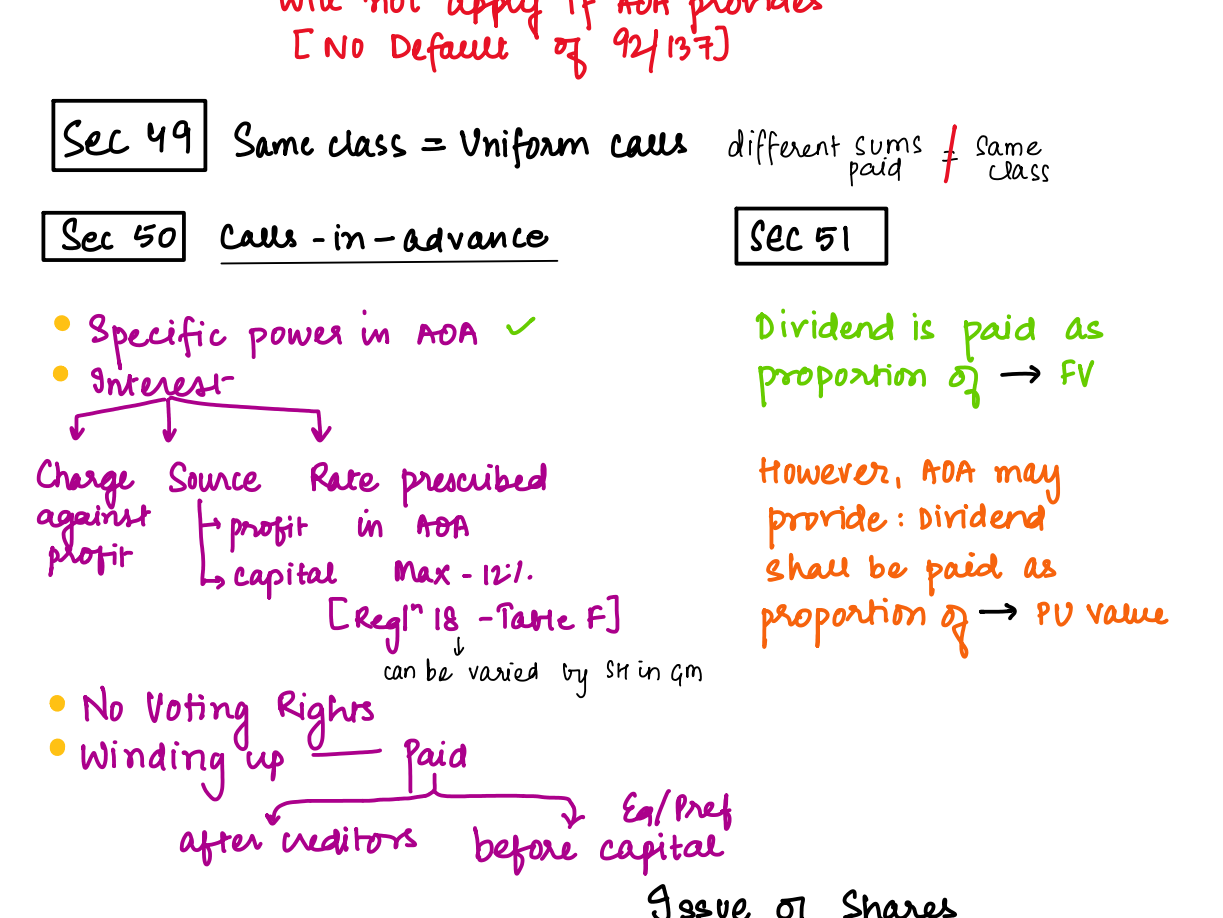 will not apply if AOA provides
[No Default of 92/137]
Sec 49 Same class = Uniform calls different sums paid ≠ same class
Sec 50 Calls-in-advance
• Specific power in AOA ✓
• Interest
Charge against profit
Source
→ profit
→ capital
Rate prescribed
in AOA
Max - 12%.
[Reglⁿ 18 - Table F]
↓
can be varied by SH in GM
• No Voting Rights
• Winding up — Paid
after creditors
before capital Eq/Pref
Sec 51
Dividend is paid as
proportion of → FV
However, AOA may
provide: Dividend
shall be paid as
proportion of → PU value
Issue of Shares